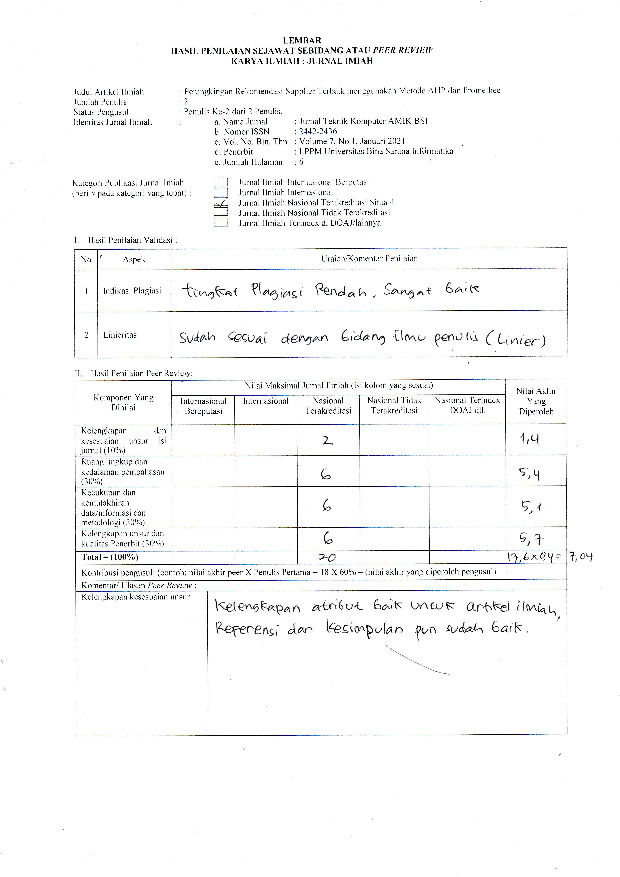 LEMBAR
HASIL PENILAIAN SEJAWAT SEBIDANG ATAU PEER REVIEW
KARYA ILMIAH : JURNAL IMIAH
Judul Artikel Ilmiah : Perangkingan Rekomendasi Supplier Terbaik menggunakan Metode AHP dan Promethee
Jumlah Penulis : 2
Status Pengusul : Penulis Ke-2 dari 2 Penulis.
Identitas Jurnal Ilmiah : a. Nama Jurnal : Jurnal Teknik Komputer AMIK BSI
b. Nomor ISSN : 2442-2436
c. Vol. No. Bln. Thn : Volume 7, No 1, Januari 2021
d. Penerbit : LPPM Universitas Bina Sarana Informatika
e. Jumlah Halaman : 6
Kategori Publikasi Jurnal Ilmiah
(beri v pada kategori yang tepat) :
Jurnal Ilmiah Internasional Bereputasi
Jurnal Ilmiah Internasional
Jurnal Ilmiah Nasional Terakreditasi Sinta 4
Jurnal Ilmiah Nasional Tidak Terakreditasi
Jurnal Ilmiah Terindex di DOAJ/lainnya
I. Hasil Penilaian Validasi :
No Aspek Uraian/Komentar Penilaian
1 Indikasi Plagiasi tingkat Plagiasi Rendah, Sangat baik
2 Linieritas Sudah sesuai dengan bidang ilmu penulis (Linier)
II. Hasil Penilaian Peer Review:
Komponen Yang Dinilai
Nilai Maksimal Jurnal Ilmiah (isi kolom yang sesuai)
Nilai Akhir Yang Diperoleh
Internasional Bereputasi
Internasional
Nasional Terakreditasi
Nasional Tidak Terakreditasi
Nasional Terindex DOAJ dll.
Kelengkapan dan
kesesuaian unsur isi
jurnal (10%) 2 1,4
Ruang lingkup dan
kedalaman pembahasan
(30%) 6 5,4
Kecukupan dan
kemutakhiran
data/informasi dan
metodologi (30%) 6 5,1
Kelengkapan unsur dan
kualitas Penerbit (30%) 6 5,7
Total = (100%) 20 17,6 x 0,4 = 7,04
Kontribusi pengusul (contoh: nilai akhir peer X Penulis Pertama = 18 X 60% = (nilai akhir yang diperoleh pengusul)
Komentar/ Ulasan Peer Review :
Kelengkapan kesesuaian unsur
Kelengkapan atribut baik untuk artikel ilmiah,
Referensi dan Kesimpulan pun sudah baik.